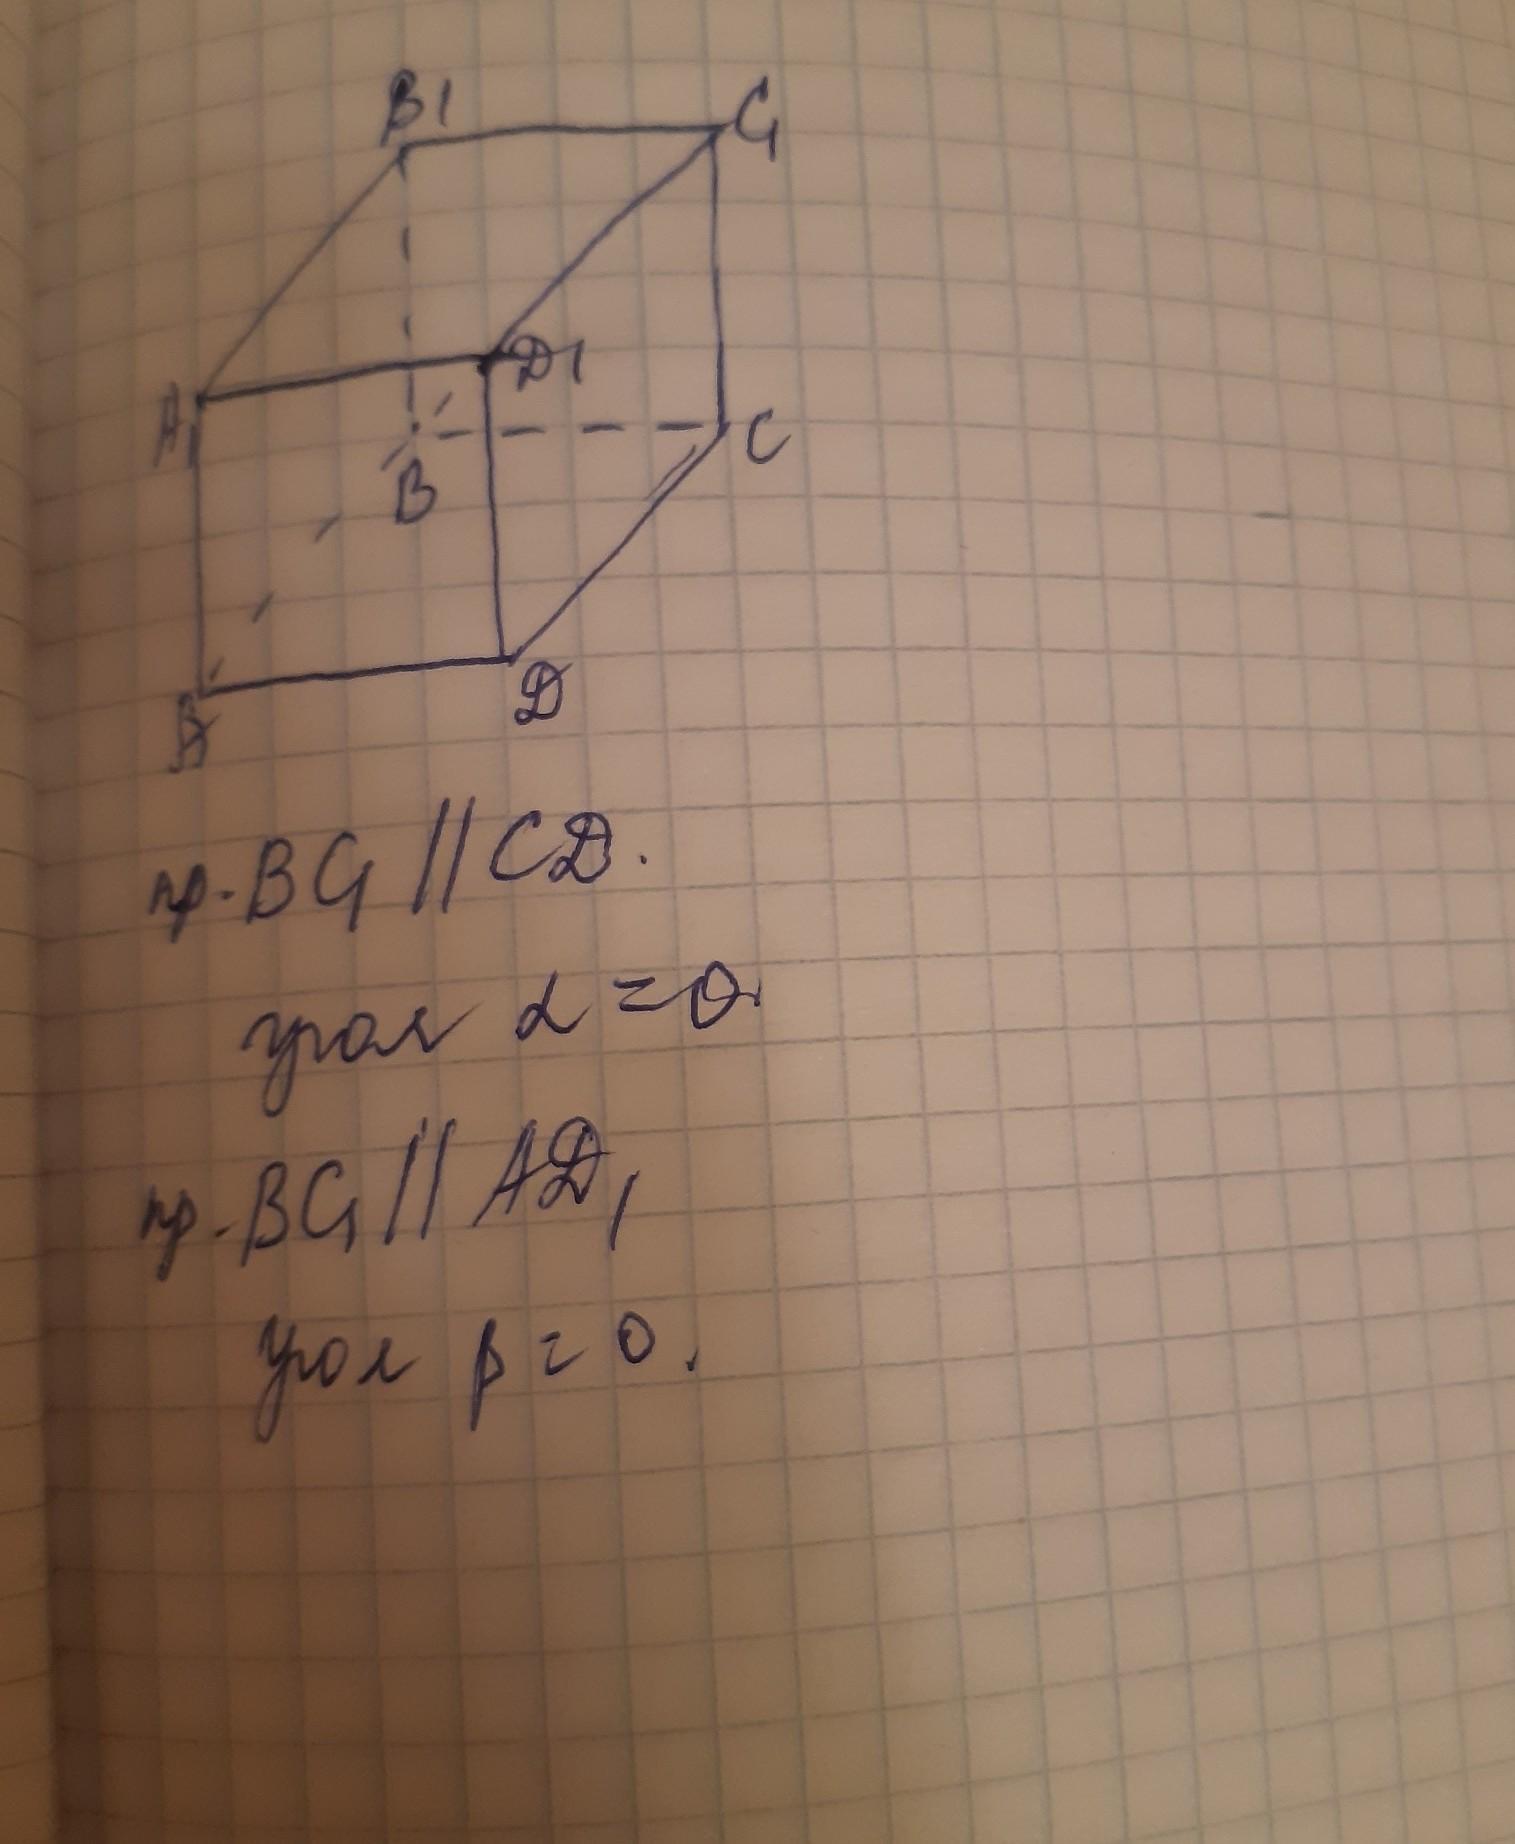 B1
C1
D1
A1
B
C
A
D
пр. BC1 || CD.
угол α = 0.
пр. BC1 || AD1
угол β = 0.